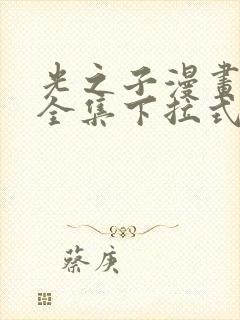 光之子漫畫
全集下拉式
蔡庚